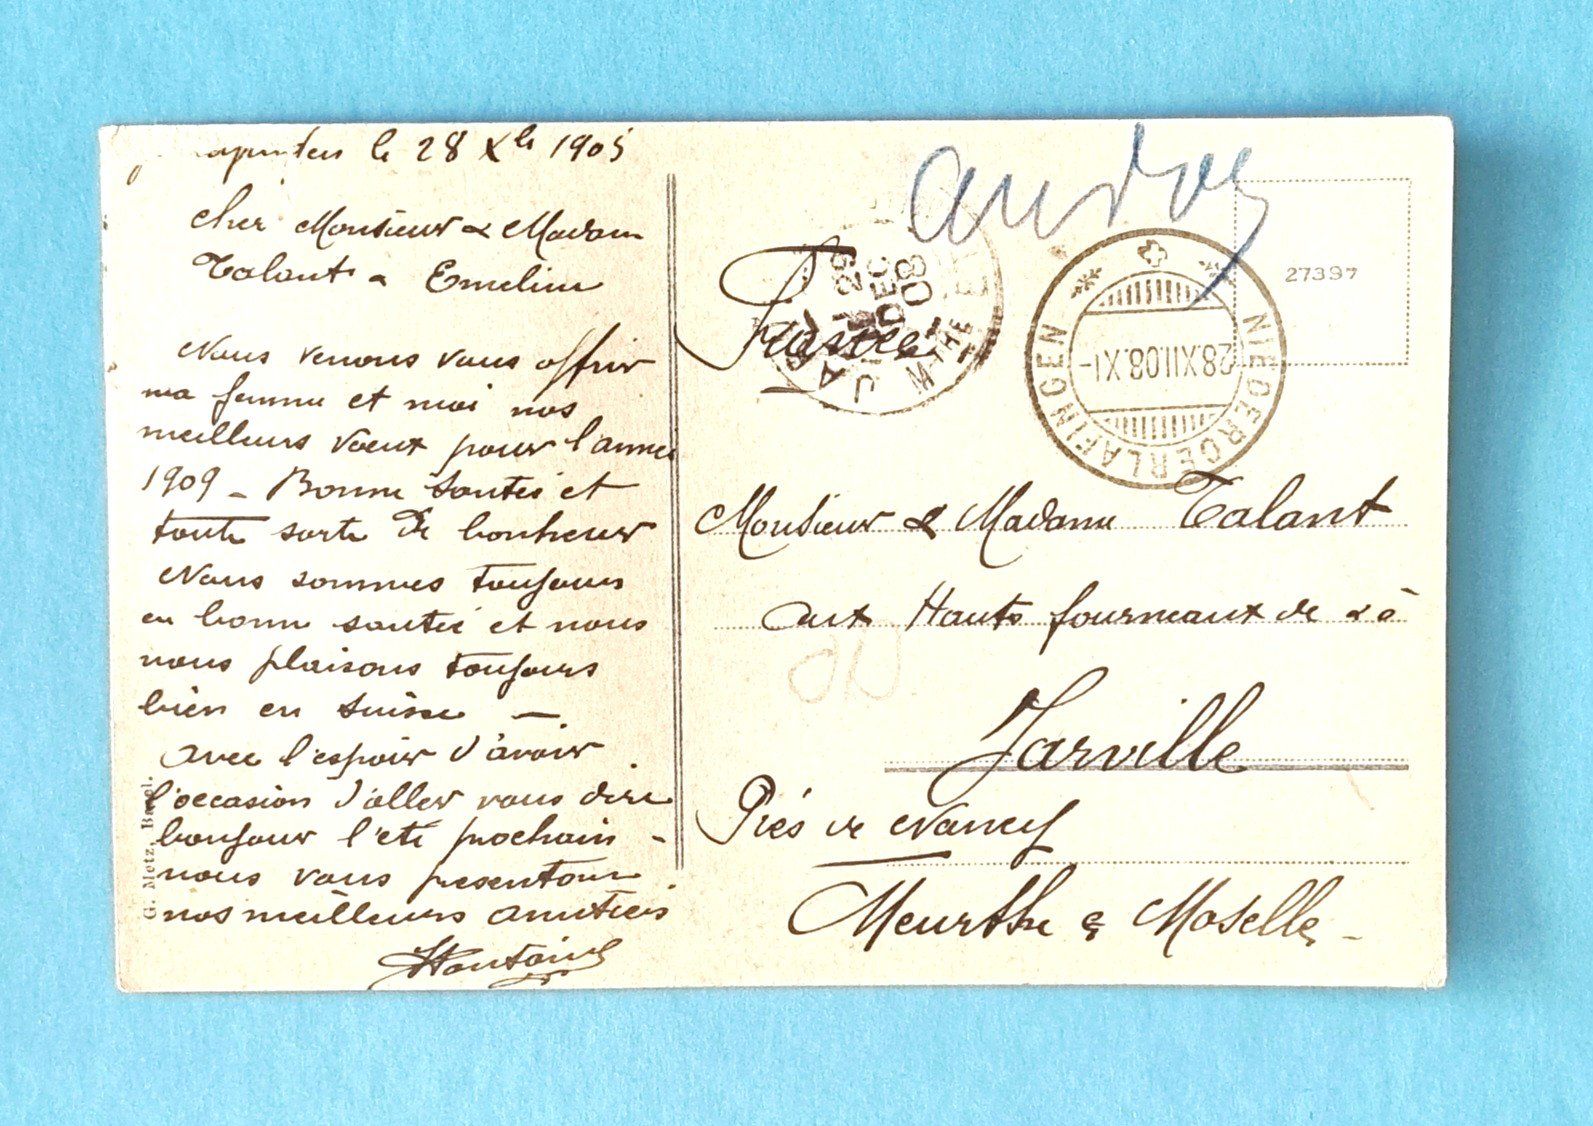 le 28 Xbre 1908
Cher Monsieur & Madam
Talant & Emeline
Nous venons vous offrir
ma femme et moi nos
meilleurs vœux pour l'année
1909 - Bonne santée et
toute sorte de bonheur
Nous sommes toujours
en bonne santée et nous
nous plaisons toujours
bien en Suisse -
Avec l'espoir d'avoir
l'occasion d'aller vous dire
bonjour l'eté prochain -
nous vous presentons
nos meilleurs amitiés
G. Metz, Basel.
29
DEC
08
NIEDERGERLAFINGEN
28.XII.08.XI-
27397
France
Monsieur & Madame Talant
aux Hauts fourneaux de & à
Jarville
Prés de Nancy
Meurthe & Moselle -